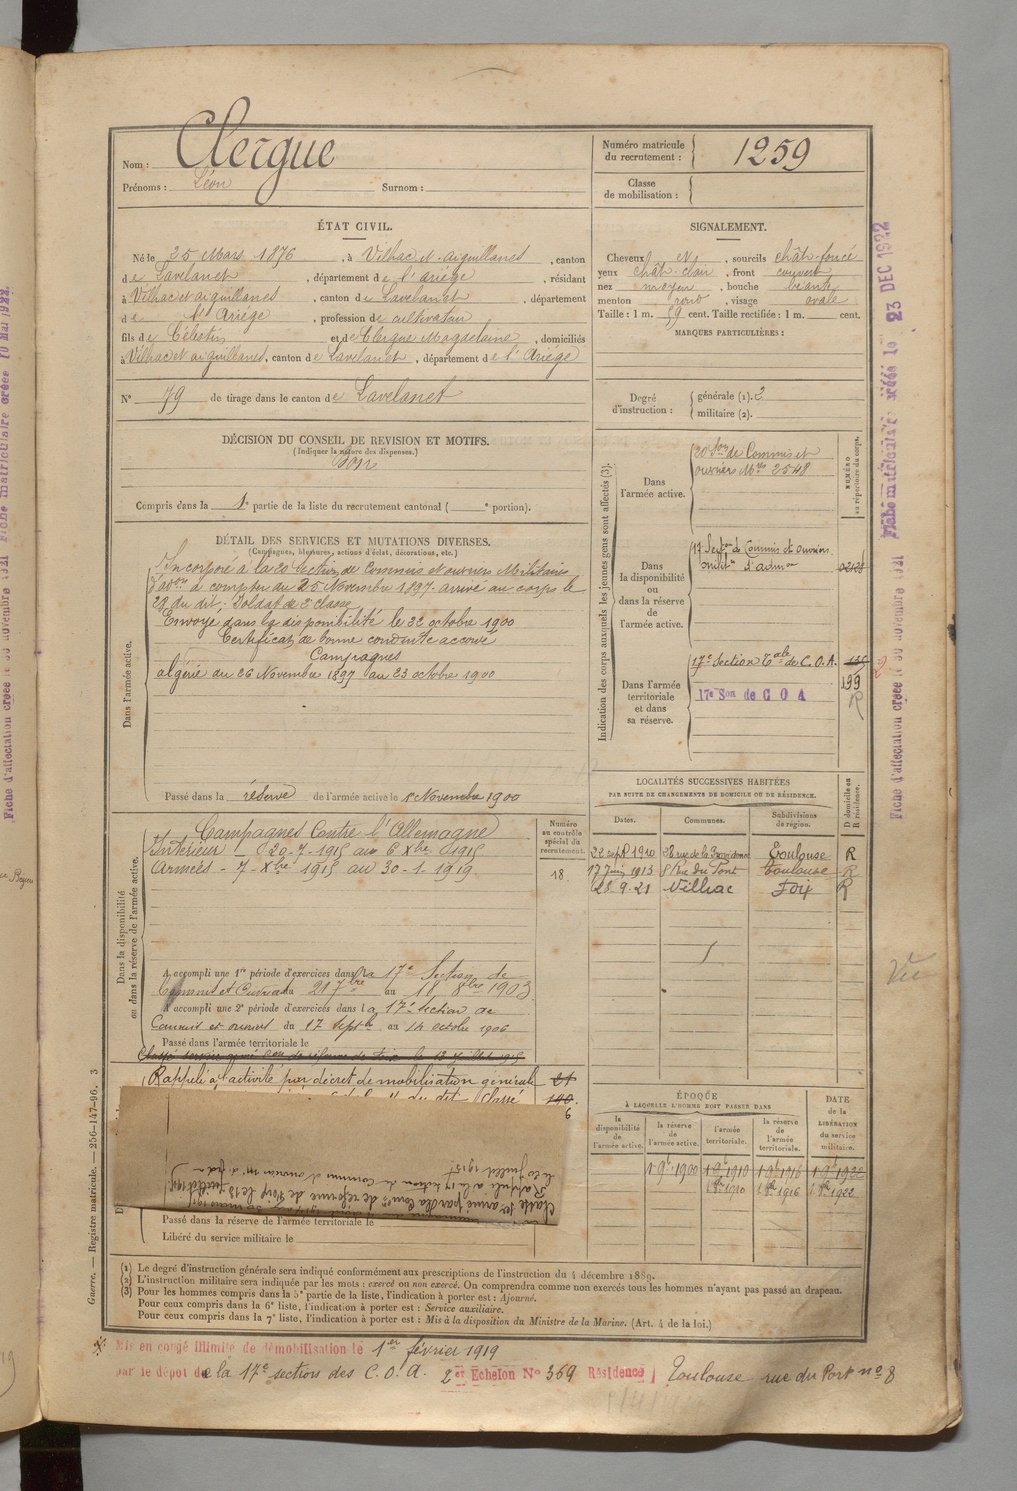 Nom : Clergue
Prénoms : Léon Surnom :
Numéro matricule du recrutement : 1259
Classe de mobilisation :
ÉTAT CIVIL.
Né le 25 Mars 1876, à Vilhac et aiguillanes, canton
de Lavelanet, département de l'ariége, résidant
à Vilhac et aiguillanes, canton de Lavelanet, département
de l'Ariége, profession de cultivateur
fils de Célestin et de Clergue Magdelaine, domiciliés
à Vilhac et aiguillanes, canton de Lavelanet, département de l'Ariége
N° 79 de tirage dans le canton de Lavelanet
SIGNALEMENT.
Cheveux et, sourcils chât-foncé
yeux chât-clair, front couvert
nez moyen, bouche béante
menton rond, visage ovale
Taille : 1 m. 59 cent. Taille rectifiée : 1 m. cent.
MARQUES PARTICULIÈRES :
Degré d'instruction : générale (1). 2
militaire (2).
DÉCISION DU CONSEIL DE REVISION ET MOTIFS.
(Indiquer la nature des dispenses.)
Bon
Compris dans la 1e partie de la liste du recrutement cantonal ( e portion).
DÉTAIL DES SERVICES ET MUTATIONS DIVERSES.
(Campagnes, blessures, actions d'éclat, décorations, etc.)
Dans l'armée active.
Incorporé à la 20 Section de Commis et ouvriers Militaires
d'adon à compter du 25 Novembre 1897. arrivé au corps le
29 du dit, Soldat de 2e classe
Envoyé dans la disponibilité le 22 octobre 1900
Certificat de bonne conduite accordé
Campagnes
algérie du 26 Novembre 1897 au 23 octobre 1900
Passé dans la réserve de l'armée active le 1er Novembre 1900
Indication des corps auxquels les jeunes gens sont affectés (3).
NUMÉRO au répertoire du corps.
Dans l'armée active.
20e Son de Commis et
ouvriers Mres 2548
Dans la disponibilité ou dans la réserve de l'armée active.
17 Section de Commis et ouvriers
milit d'admon
Dans l'armée territoriale et dans sa réserve.
17e Section Tale de C.O.A.
199
R
17e Son de C O A
LOCALITÉS SUCCESSIVES HABITÉES
PAR SUITE DE CHANGEMENTS DE DOMICILE OU DE RÉSIDENCE.
D domicile ou R résidence.
Dates. Communes. Subdivisions de région.
22 sept 1910 38 rue de la Providence Toulouse R
17 Juin 1913 8 Rue du Pont Toulouse R
23.9.21 Vilhac Foix R
Dans la disponibilité ou dans la réserve de l'armée active.
Numéro au contrôle spécial du recrutement.
18
Campagnes Contre l'Allemagne
Intérieur - 20-7-1915 au 6 Xbre 1915
Armées - 7-Xbre 1915 au 30-1-1919
A accompli une 1re période d'exercices dans la 17e Section de
Commis et Ouvriers du 21 7bre au 18 8bre 1903
A accompli une 2e période d'exercices dans la 17e Section de
Commis et ouvriers du 17 septbre au 14 octobre 1906
Passé dans l'armée territoriale le
Classé service armé Con de réforme de Foix le 13 Juillet 1915
Rappelé à l'activité par décret de mobilisation générale 21
190
6
Classé ser armé par la Cons de réforme de Foix le 13 Juillet 1915
Rappelé à la 17 Section de Commis et ouvriers m. d'adon
le 20 Juillet 1915
Passé dans la réserve de l'armée territoriale le
Libéré du service militaire le
ÉPOQUE
À LAQUELLE L'HOMME DOIT PASSER DANS
DATE de la LIBÉRATION du service militaire.
la disponibilité de l'armée active. la réserve de l'armée active. l'armée territoriale. la réserve de l'armée territoriale.
1 9b 1900 1 9b 1910 1 9b 1916 1 9b 1922
1 8bre 1910 1 8bre 1916 1 8bre 1922
(1) Le degré d'instruction générale sera indiqué conformément aux prescriptions de l'instruction du 4 décembre 1889.
(2) L'instruction militaire sera indiquée par les mots : exercé ou non exercé. On comprendra comme non exercés tous les hommes n'ayant pas passé au drapeau.
(3) Pour les hommes compris dans la 5e partie de la liste, l'indication à porter est : Ajourné.
Pour ceux compris dans la 6e liste, l'indication à porter est : Service auxiliaire.
Pour ceux compris dans la 7e liste, l'indication à porter est : Mis à la disposition du Ministre de la Marine. (Art. 4 de la loi.)
Guerre. — Registre matricule. — 256-147-96. 3
Mis en congé illimité de démobilisation le 1er février 1919
par le dépôt de la 17e section des C.O.A. 2er Echelon N° 369 Résidence Toulouse rue du Port n° 8
Fiche matriculaire créée le 23 DEC 1922
Fiche d'affectation créée le 30 novembre 1921
Vu
Fiche d'affectation créée le 30 novembre 1921 Fiche matriculaire créée 10 Mai 1922